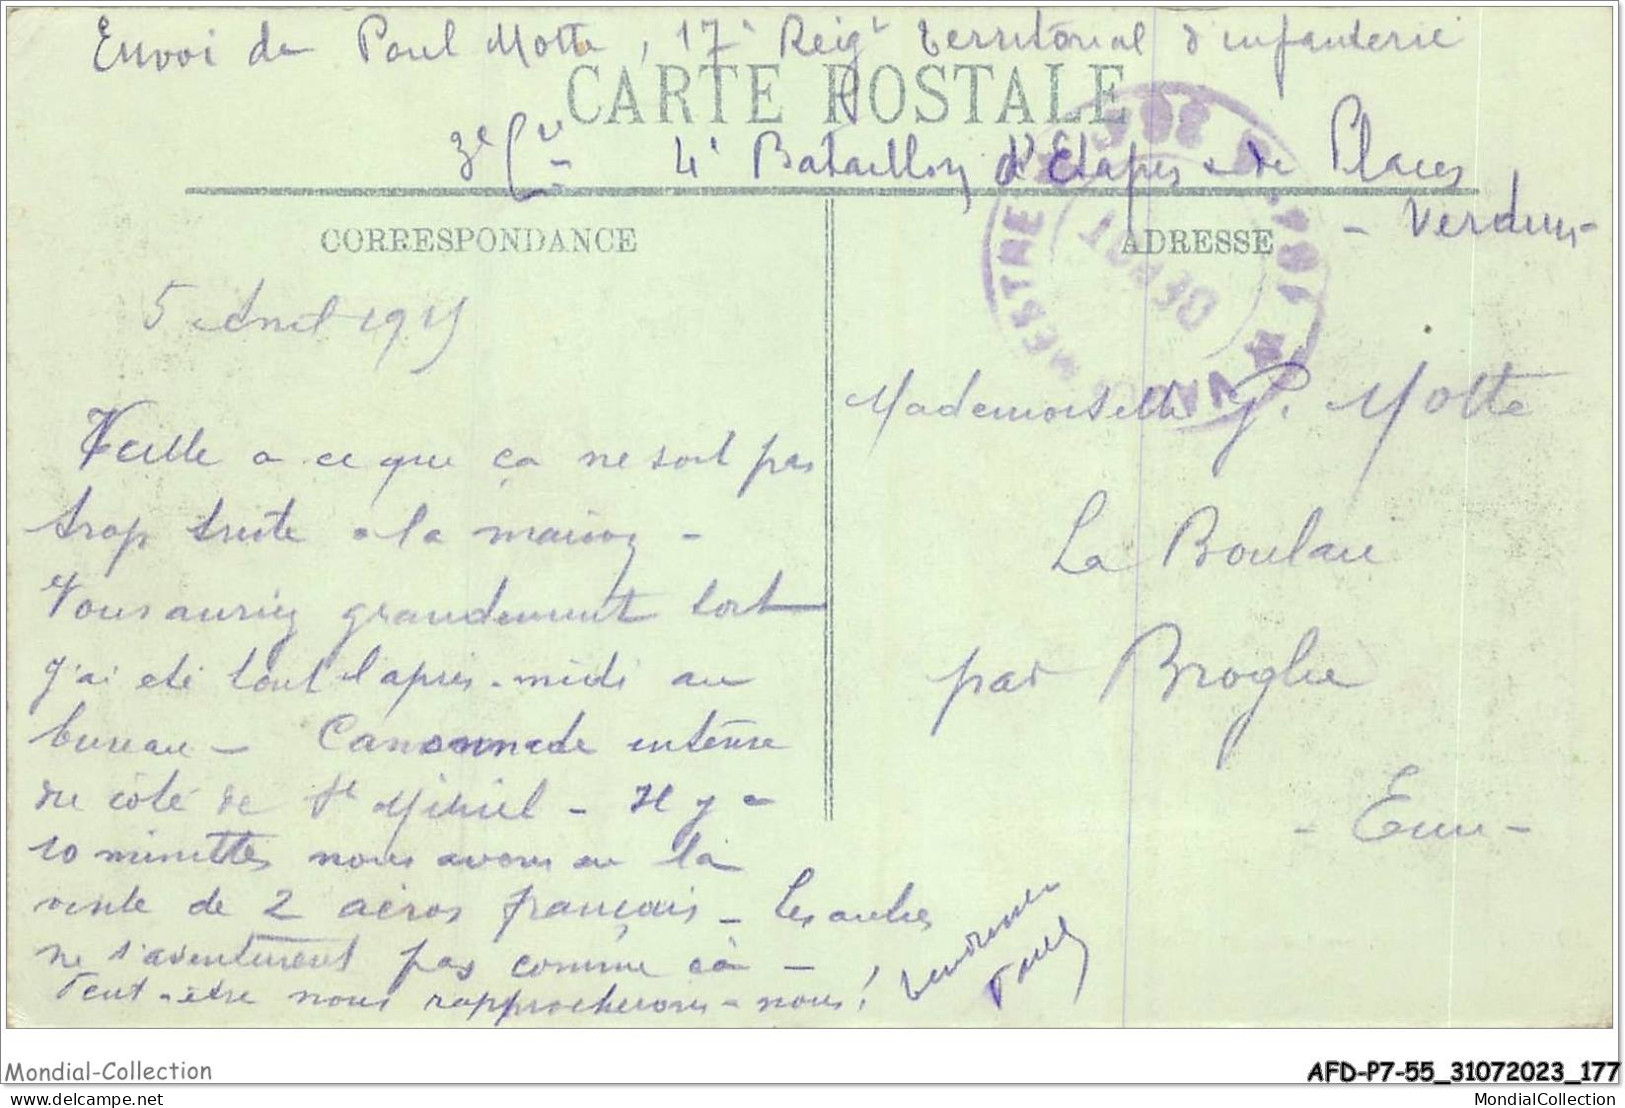 Envoi de Paul Motte, 17e Reigt territorial d'infanterie
CARTE POSTALE
3e Cie 4e Bataillon d'Etapes - de Places
- Verdun -
CORRESPONDANCE
ADRESSE
DEPOT
5 Avril 1915
Veille a ce que ça ne soit pas
trop triste a la maison -
Vous auriez grandement tort
J'ai eté tout l'après-midi au
bureau - Canonnade intense
du côté de St Mihiel - Il y a
10 minuttes nous avons eu la
visite de 2 aéros français - Les autres
ne s'aventurent pas comme cà -
Peut-être nous rapprocherons-nous!
Tendresses
Paul
Mademoiselle G. Motte
La Boulaie
par Broglie
- Eure -
Mondial-Collection
AFD-P7-55_31072023_177
delcampe.net
MondialCollection